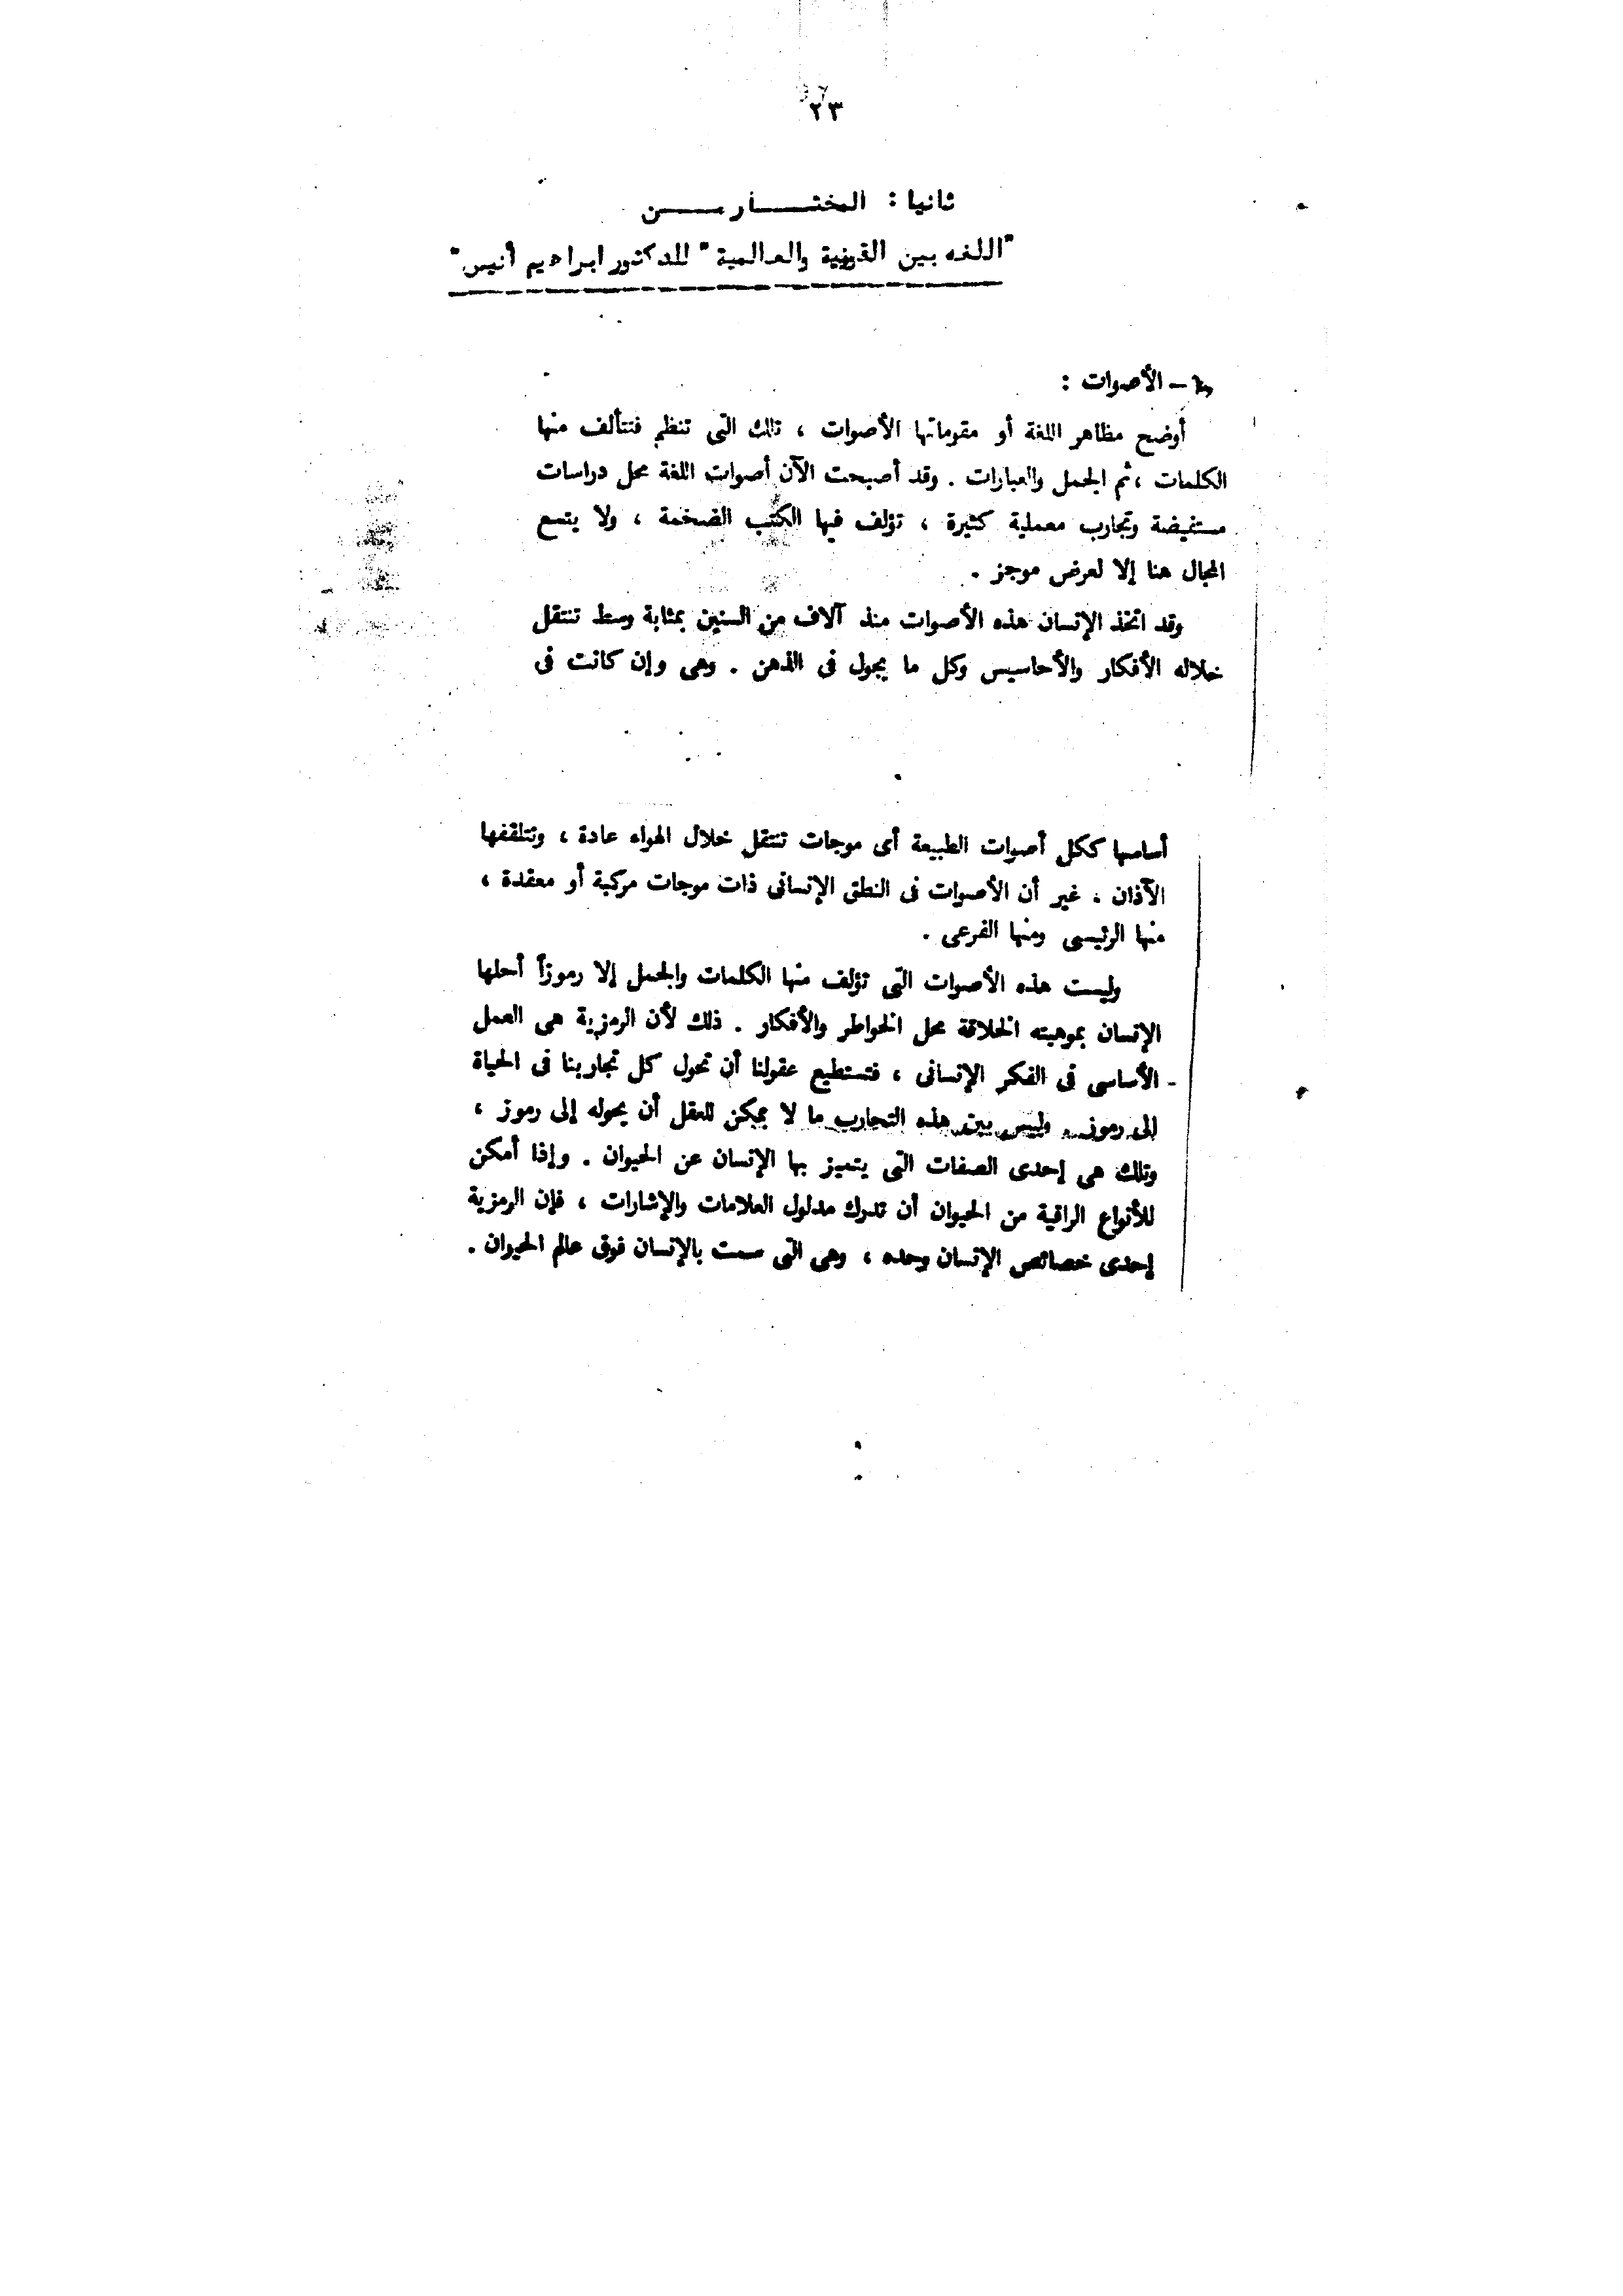 ٢٣
ثانيا : المختـــــار مـــــن
"اللغه بين القومية والعالمية" للدكتور ابراهيم أنيس"
- الأصوات :
أوضح مظاهر اللغة أو مقوماتها الأصوات ، تلك التى تنظم فتتألف منها
الكلمات ، ثم الجمل والعبارات . وقد أصبحت الآن أصوات اللغة محل دراسات
مستفيضة وتجارب معملية كثيرة ، تؤلف فيها الكتب الضخمة ، ولا يتسع
المجال هنا إلا لعرض موجز .
وقد اتخذ الإنسان هذه الأصوات منذ آلاف من السنين بمثابة وسط تنتقل
خلاله الأفكار والأحاسيس وكل ما يجول فى الذهن . وهى وإن كانت فى
أساسها ككل أصوات الطبيعة أى موجات تنتقل خلال الهواء عادة ، وتتلقفها
الآذان ، غير أن الأصوات فى النطق الإنسانى ذات موجات مركبة أو معقدة ،
منها الرئيسى ومنها الفرعى .
وليست هذه الأصوات التى تؤلف منها الكلمات والجمل إلا رموزاً أحلها
الإنسان بموهبته الخلاقة محل الخواطر والأفكار . ذلك لأن الرمزية هى العمل
الأساسى فى الفكر الإنسانى ، فتستطيع عقولنا أن تحول كل تجاربنا فى الحياة
إلى رموز . وليس بين هذه التجارب ما لا يمكن للعقل أن يحوله إلى رموز ،
وتلك هى إحدى الصفات التى يتميز بها الإنسان عن الحيوان . وإذا أمكن
للأنواع الراقية من الحيوان أن تدرك مدلول العلامات والإشارات ، فإن الرمزية
إحدى خصائص الإنسان وحده ، وهى التى سمت بالإنسان فوق عالم الحيوان .